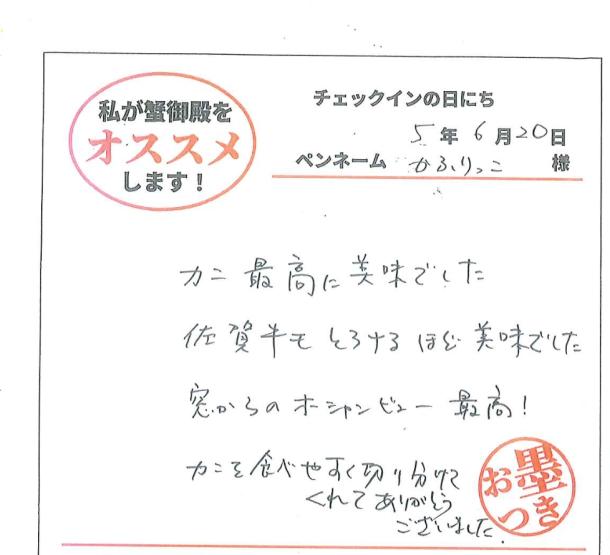 私が蟹御殿を
オススメ
します！
チェックインの日にち
5年6月20日
ペンネーム かふりっこ 様
カニ最高に美味でした
佐賀牛もとろけるほど美味でした
窓からのオーシャンビュー最高!
カニを食べやすく切り分けて
くれてありがとう
ございました.
お墨つき